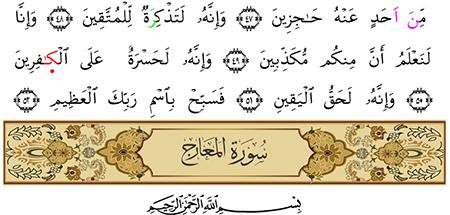 مِّنۡ أَحَدٍ عَنۡهُ حَـٰجِزِينَ ﴿٤٧﴾ وَإِنَّهُۥ لَتَذۡكِرَةٌ لِّلۡمُتَّقِينَ ﴿٤٨﴾ وَإِنَّا
لَنَعۡلَمُ أَنَّ مِنكُم مُّكَذِّبِينَ ﴿٤٩﴾ وَإِنَّهُۥ لَحَسۡرَةٌ عَلَى ٱلۡكَـٰفِرِينَ
﴿٥٠﴾ وَإِنَّهُۥ لَحَقُّ ٱلۡيَقِينِ ﴿٥١﴾ فَسَبِّحۡ بِٱسۡمِ رَبِّكَ ٱلۡعَظِيمِ ﴿٥٢﴾
سُورَةُ المَعَارِجِ
بِسۡمِ ٱللَّهِ ٱلرَّحۡمَـٰنِ ٱلرَّحِيمِ